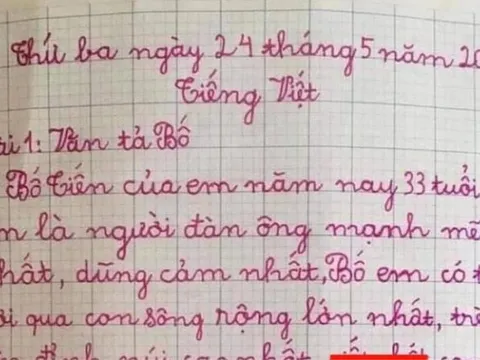 Thứ ba ngày 24 tháng 5 năm 20
Tiếng Việt
ài 1: Văn tả Bố
Bố Tiến của em năm nay 33 tuổi
m là người đàn ông mạnh mẽ
hất, dũng cảm nhất, Bố em có t
ơi qua con sông rộng lớn nhất, trè